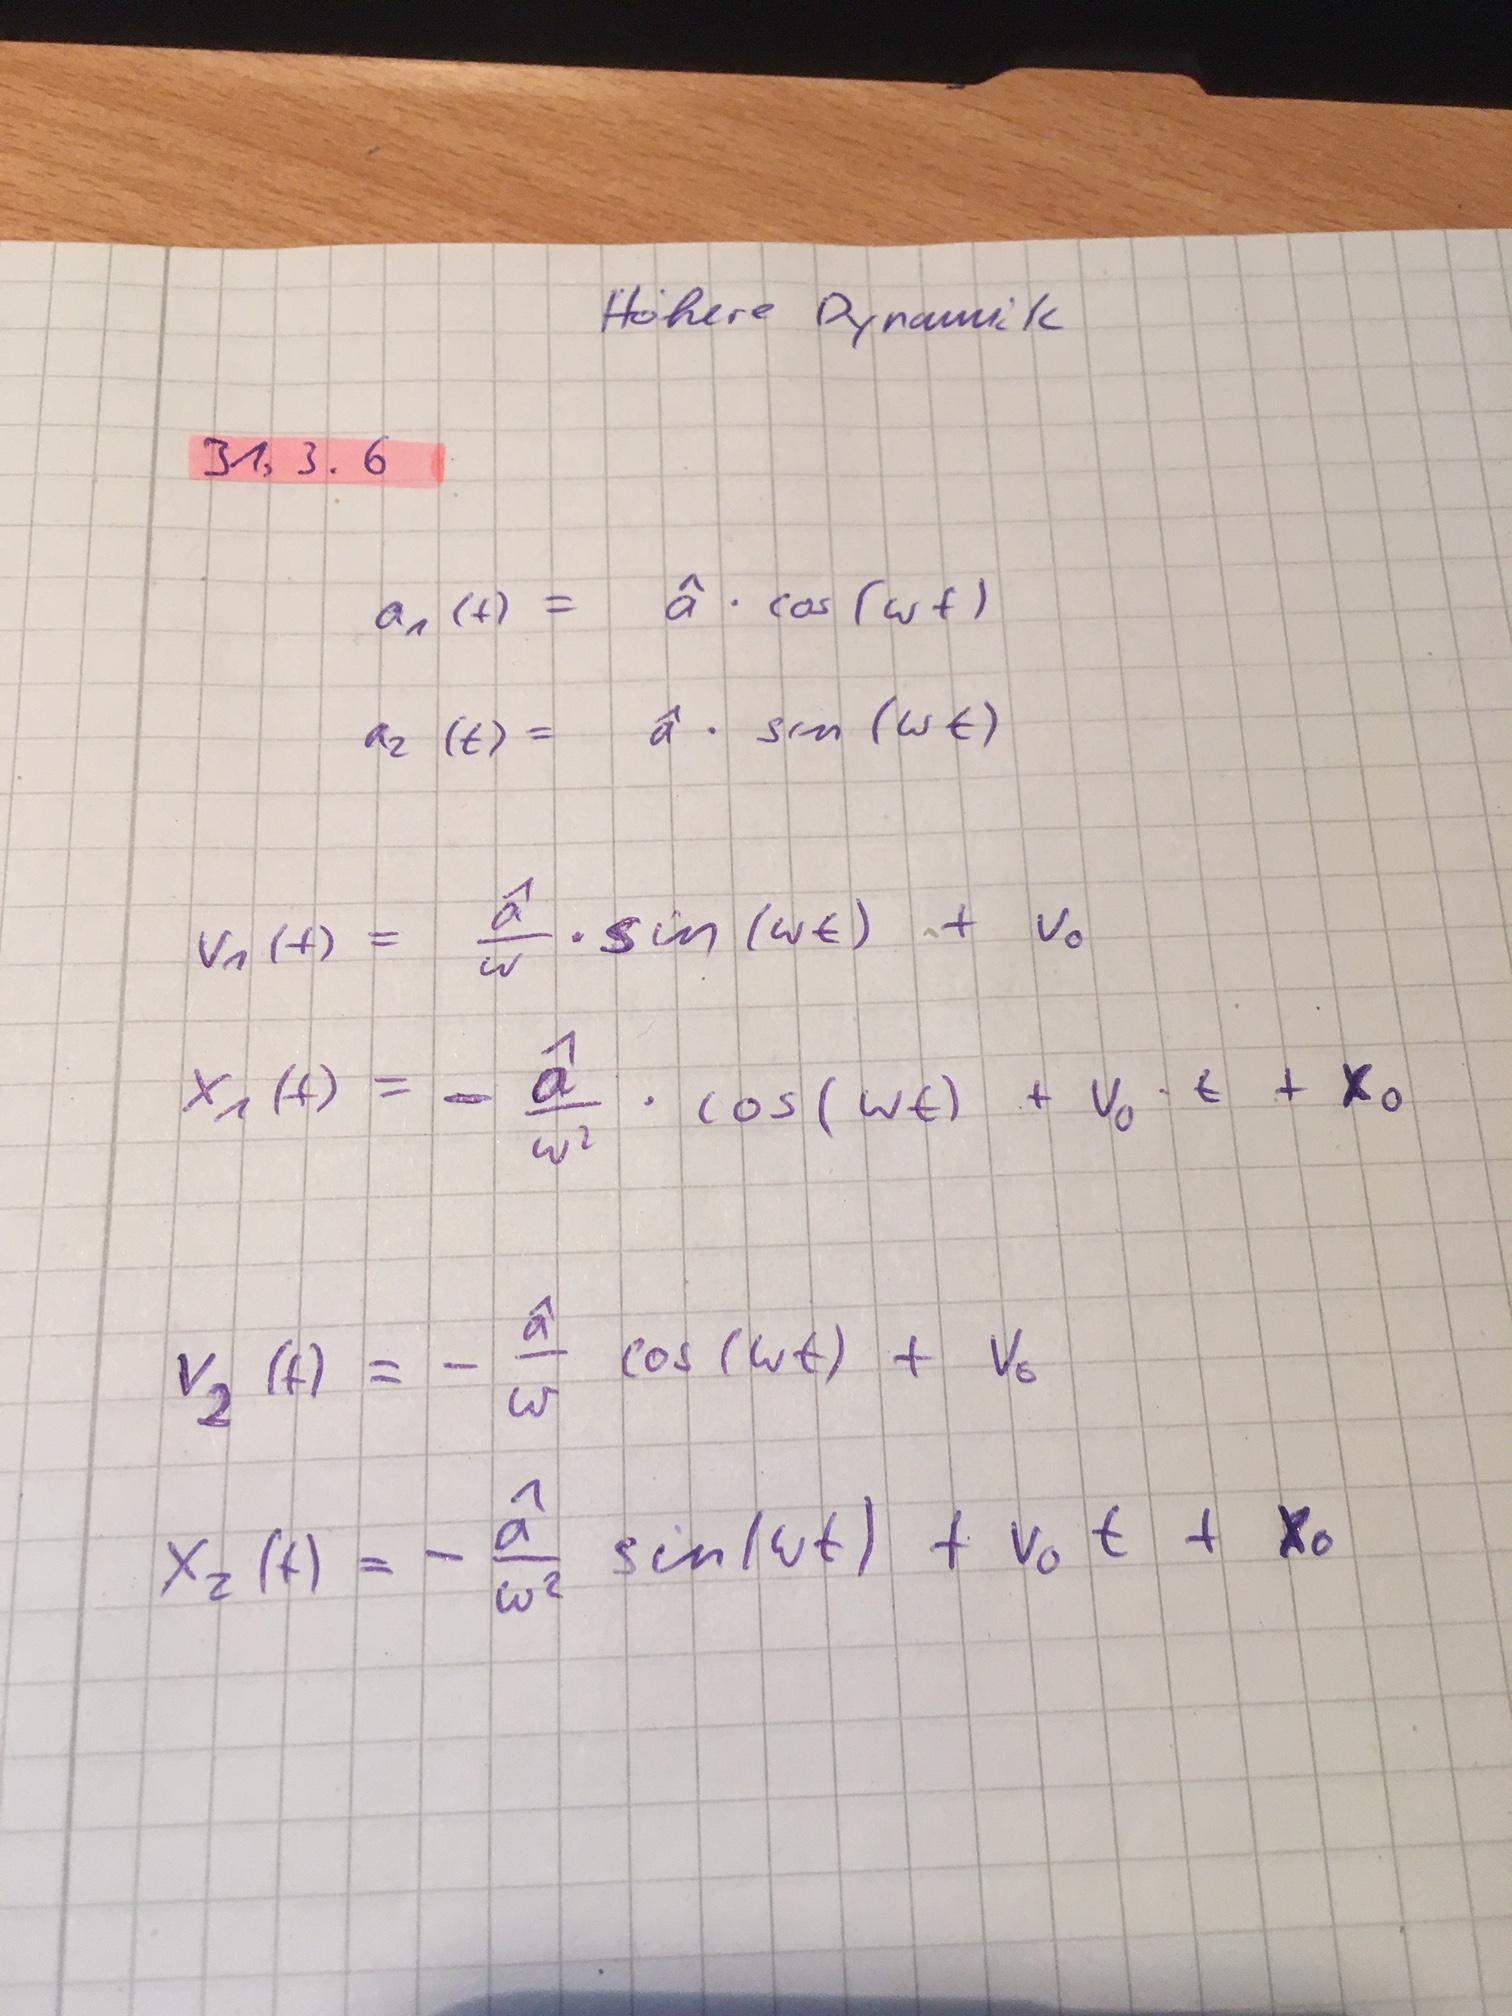 Höhere Dynamik
31, 3. 6
a₁ (t) = â · cos(ωt)
a₂ (t) = â · sin(ωt)
v₁(t) = â/ω · sin(ωt) + v₀
x₁(t) = - â/ω² · cos(ωt) + v₀ · t + x₀
v₂ (t) = - â/ω cos(ωt) + v₀
x₂(t) = - â/ω² sin(ωt) + v₀ t + x₀